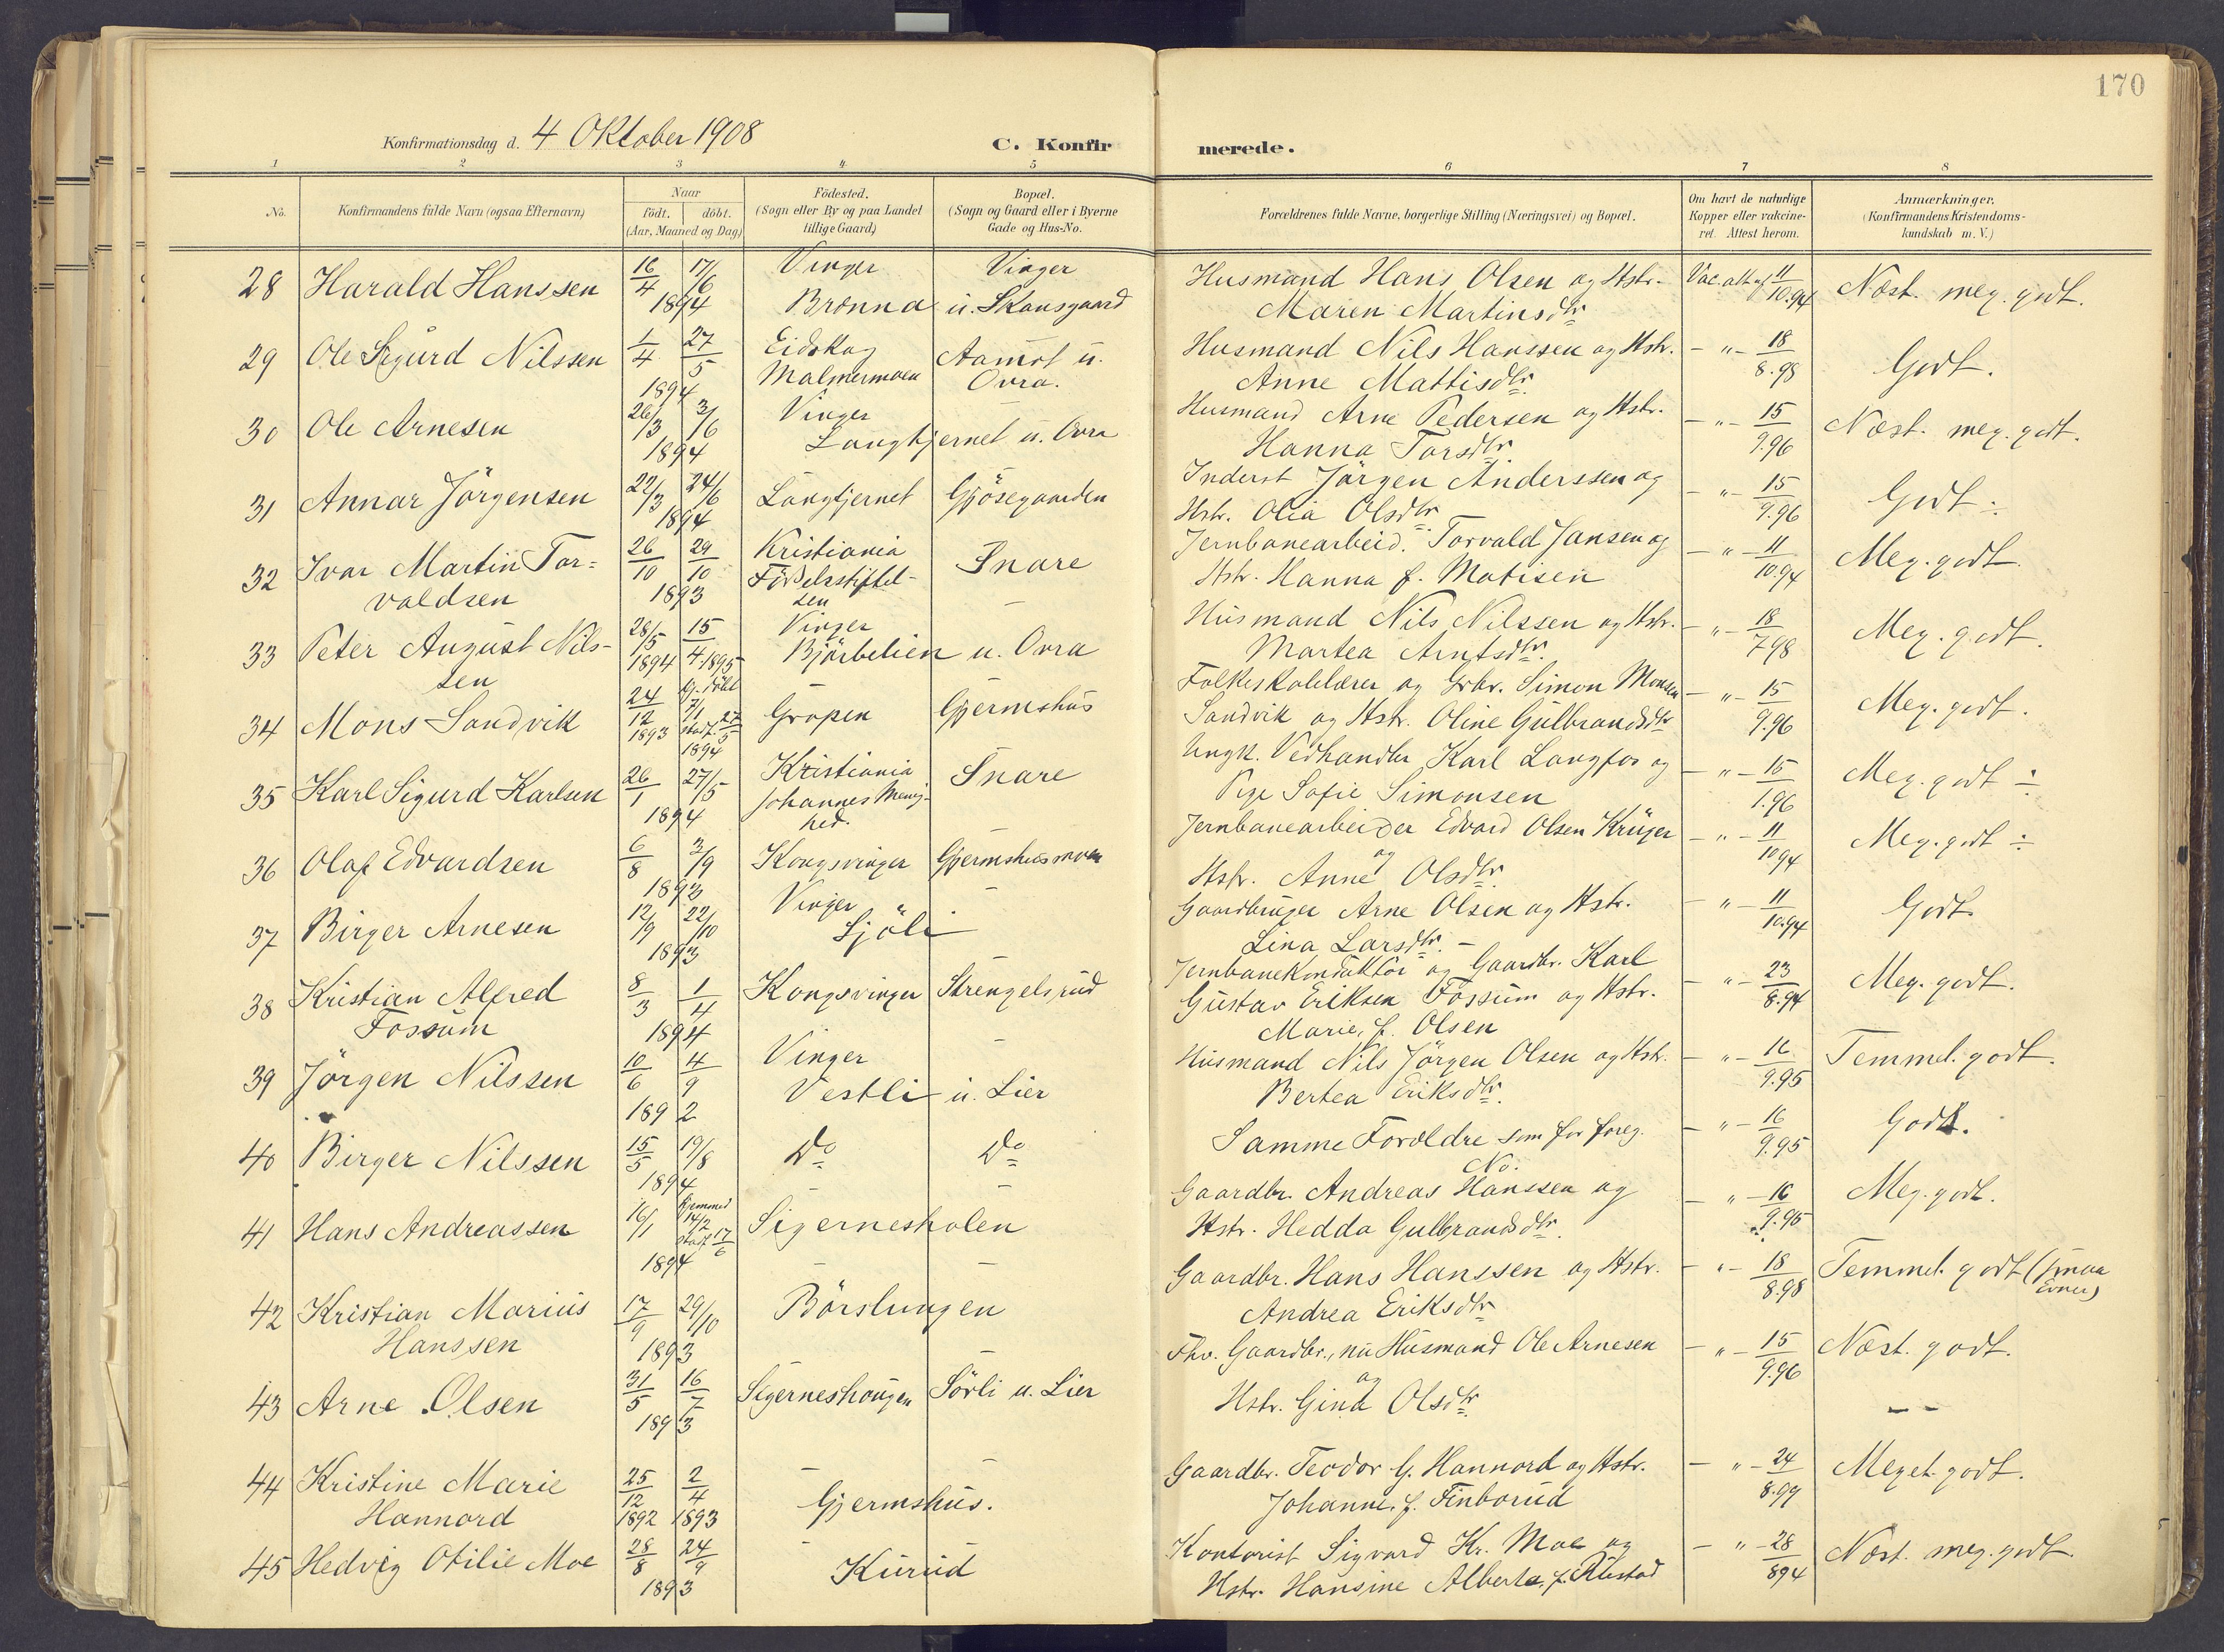 170
Konfirmationsdag d. 4 Oktober 1908
C. Konfirmerede.
1 2 3 4 5 6 7 8
No.
Konfirmandens fulde Navn (ogsaa Efternavn)
Naar
födt. döbt.
(Aar, Maaned og Dag)
Födested.
(Sogn eller By og paa Landet
tillige Gaard)
Bopæl.
(Sogn og Gaard eller i Byerne
Gade og Hus-No.
Forældrenes fulde Navne, borgerlige Stilling (Næringsvei) og Bopæl.
Om havt de naturlige
Kopper eller vakcine-
ret. Attest herom.
Anmærkninger.
(Konfirmandens Kristendoms-
kundskab m. V.)
28 Harald Hanssen 16/4 17/6 1894 Vinger Brønna Vinger u. Skansgaard
Husmand Hans Olsen og Hstr. Vac. att. af 11/10.94 Næst. meg. godt.
Maren Martinsdtr
29 Ole Sigurd Nilssen 1/4 27/5 1894 Eidskog Malmermoen Aamot u. Ovra.
Husmand Nils Hanssen og Hstr. - " - 18/8.98 Godt.
Anne Mattisdtr.
30 Ole Arnesen 26/3 3/6 1894 Vinger Langtjernet u. Ovra
Husmand Arne Pedersen og Hstr. - " - 15/9.96 Næst. meg. godt.
Hanna Torsdtr.
31 Annar Jörgensen 22/3 24/6 1894 Langtjernet Gjösegaarden
Inderst Jörgen Anderssen og - " - 15/9.96 Godt ÷
Hstr. Olia Olsdtr.
32 Ivar Martin Tor=
valdsen 26/10 29/10 1893 Kristiania Födselsstiftel-
sen Snare
Jernbanearbeid. Torvald Jansen og - " - 11/10.94 Meg. godt.
Hstr. Hanna f. Matisen
33 Peter August Nils-
sen 28/5 1894 15/4 1895 Vinger Bjørbelien u. Ovra
Husmand Nils Nilssen og Hstr. - " - 18/7 98 Meg. godt.
Martea Arntsdtr.
34 Mons Sandvik 24/12 1893 hj. döbt 7/1 stadf. 27/5 1894 Gropen Gjermshus
Folkeskolelærer og Grbr. Simon Monsen - " - 15/9.96 Meg. godt.
Sandvik og Hstr. Oline Gulbrandsdtr
35 Karl Sigurd Karlsen 26/1 27/5 1894 Kristiania Johannes Menig-
hed. Snare
Ungk. Vedhandler Karl Langfos og - " - 15/1.96 Meg. godt ÷
Pige Sofie Simonsen
36 Olaf Edvardsen 6/8 3/9 1893 Kongsvinger Gjermshusmoen
Jernbanearbeider Edvard Olsen Krüger - " - 11/10 94 Meg. godt ÷
og
Hstr. Anne Olsdtr.
37 Birger Arnesen 12/9 22/10 1893 Vinger Sjöli
Gaardbruger Arne Olsen og Hstr. - " - 11/10.94 Godt.
Lina Larsdtr. -
38 Kristian Alfred
Fossum 8/3 1/4 1894 Kongsvinger Strengelsrud
Jernbanekonduktör og Gaardbr. Karl - " - 23/8.94 Meg. godt.
Gustav Eriksen Fossum og Hstr.
Marie, f. Olsen
39 Jörgen Nilssen 10/6 4/9 1892 Vinger Vestli u. Lier
Husmand Nils Jörgen Olsen og Hstr. - " - 16/9.95 Temmel. godt.
Bertea Eriksdtr.
40 Birger Nilssen 15/5 19/8 1894 Do Do
Samme Forældre som for foreg. - " - 16/9.95 Godt.
No.
41 Hans Andreassen 16/1 Hjemmed 14/2 stadf. 17/6 1894 Sigernesholen
Gaardbr. Andreas Hanssen og - " - 16/9.95 Meg. godt.
Hstr. Hedda Gulbrandsdtr.
42 Kristian Marius
Hanssen 17/9 29/10 1893 Börslungen
Gaardbr. Hans Hanssen og Hstr. - " - 18/8.98 Temmel. godt (smaa
Evner)
Andrea Eriksdtr
43 Arne Olsen 31/5 16/7 1893 Sigerneshougen Sörli u. Lier
Fhv. Gaardbr., nu Husmand Ole Arnesen - " - 15/9.96 Næst. godt.
og
Hstr. Gina Olsdtr.
44 Kristine Marie
Hannord 25/12 1892 2/4 1893 Gjermshus.
Gaardbr. Teodor G. Hannord og Hstr. - " - 24/8.99 Meget godt.
Johanne, f. Finborud
45 Hedvig Otilie Moe 28/8 24/9 1893 Kurud
Kontorist Sigvard Kr. Moe og - " - 28/8 94 Næst. meg. godt.
Hstr. Hansine Alberte, f. Rustad